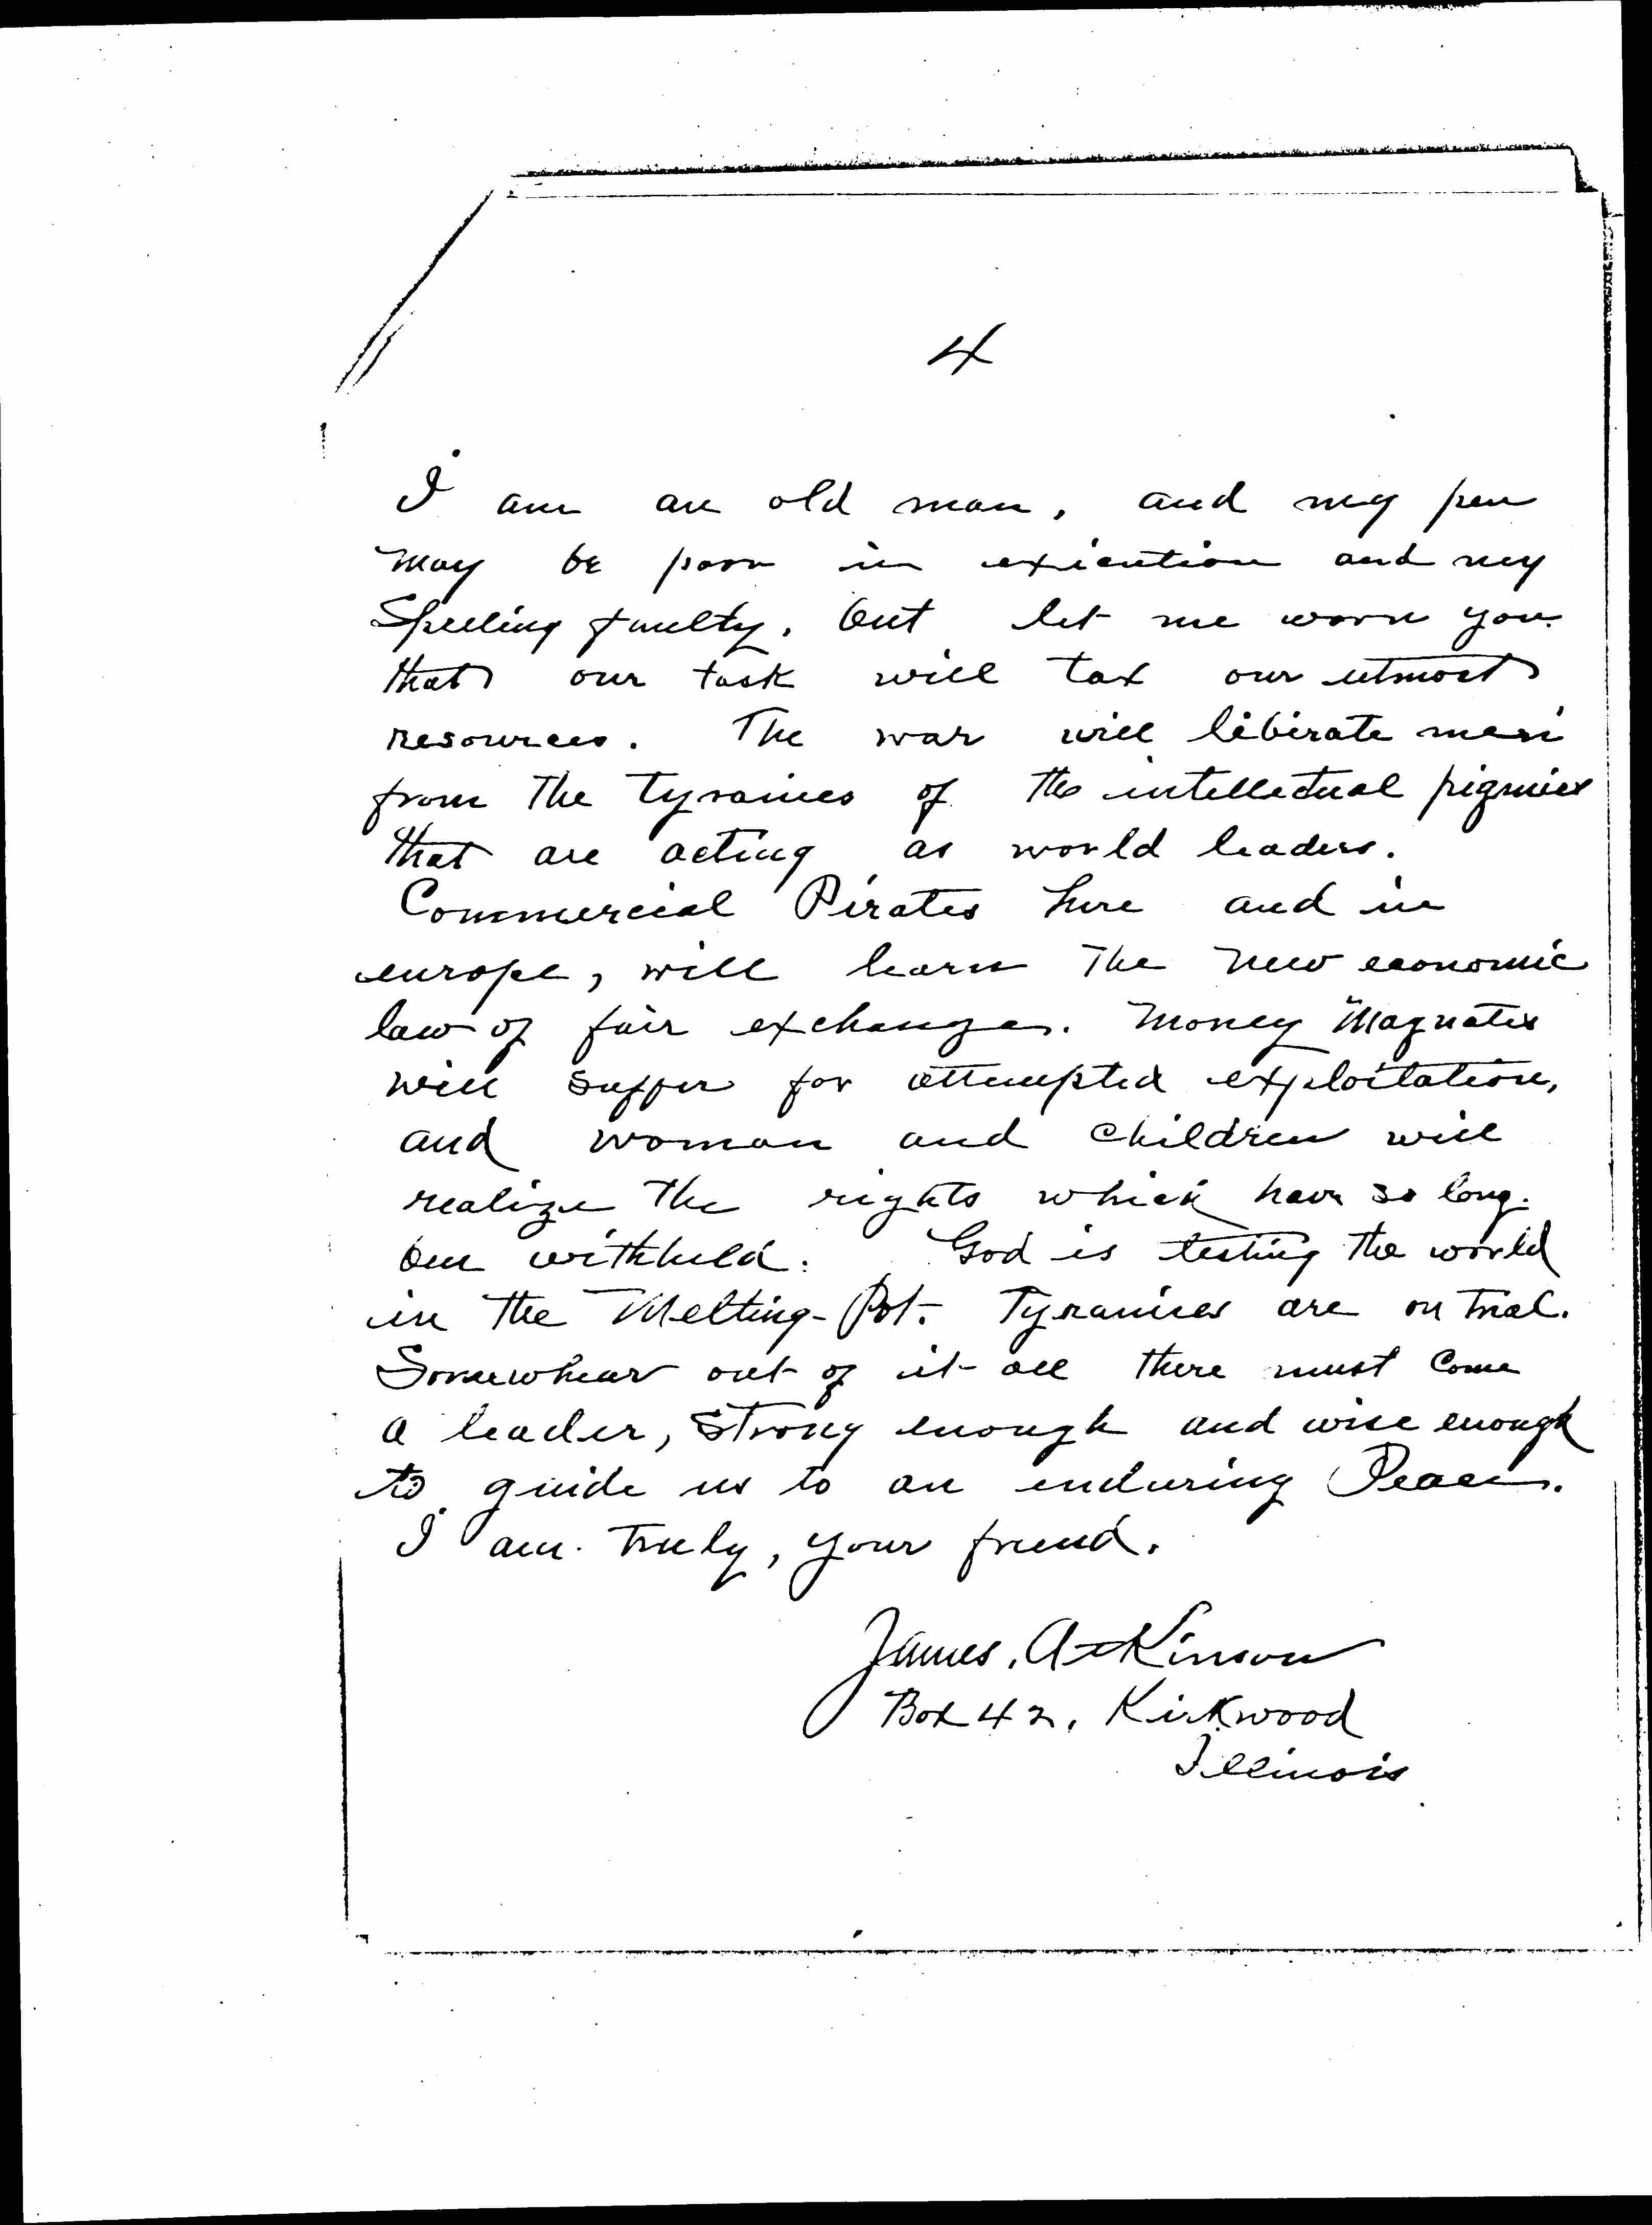 4
I am an old man, and my pen
may be poor in exicution and my
Spelling faulty, but let me warn you
that our task will tax our utmost
resources. The war will liberate men
from The Tyranies of the intellectual pigmies
that are acting as world leaders.
Commercial Pirates here and in
europe, will learn The New economic
law of fair exchange. Money Magnates
will suffer for attempted exploitation,
and woman and children will
realize The rights which have so long
been withheld. God is testing the world
in the Melting-Pot. Tyranies are on trial.
Somewhear out of it all there must Come
a leader, strong enough and wise enough
to guide us to an enduring Peace.
I am. Truly, your friend.
James. Atkinson
Box 42, Kirkwood
Illinois